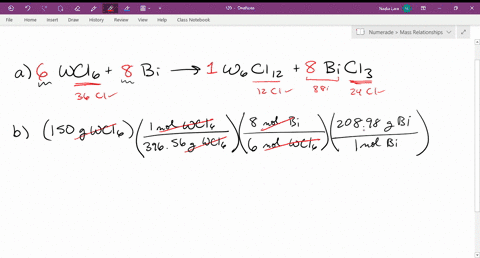 129 - OneNote
Nayka Lara
File Home Insert Draw History Review View Help Class Notebook
Numerade > Mass Relationships
a) 6 WCl6 + 8 Bi → 1 W6Cl12 + 8 BiCl3
36 Cl 12 Cl 8Bi 24 Cl
b) (150 g WCl6) (1 mol WCl6 / 396.56 g WCl6) (8 mol Bi / 6 mol WCl6) (208.98 g Bi / 1 mol Bi)